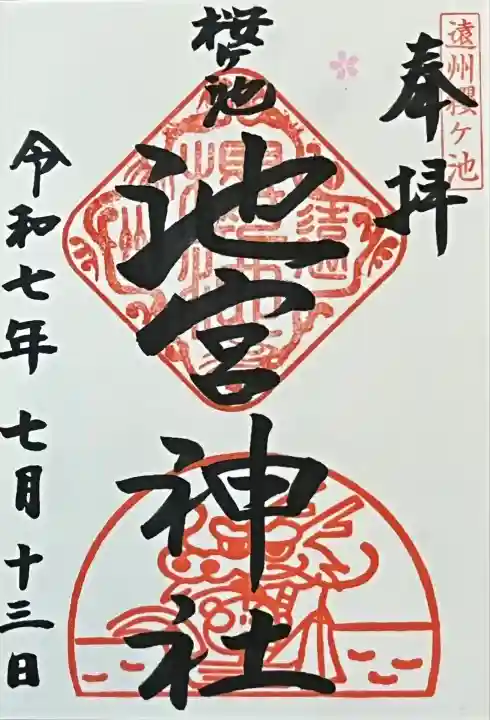 遠州櫻ヶ池
奉拝
桜ヶ池
池宮神社
令和七年 七月十三日